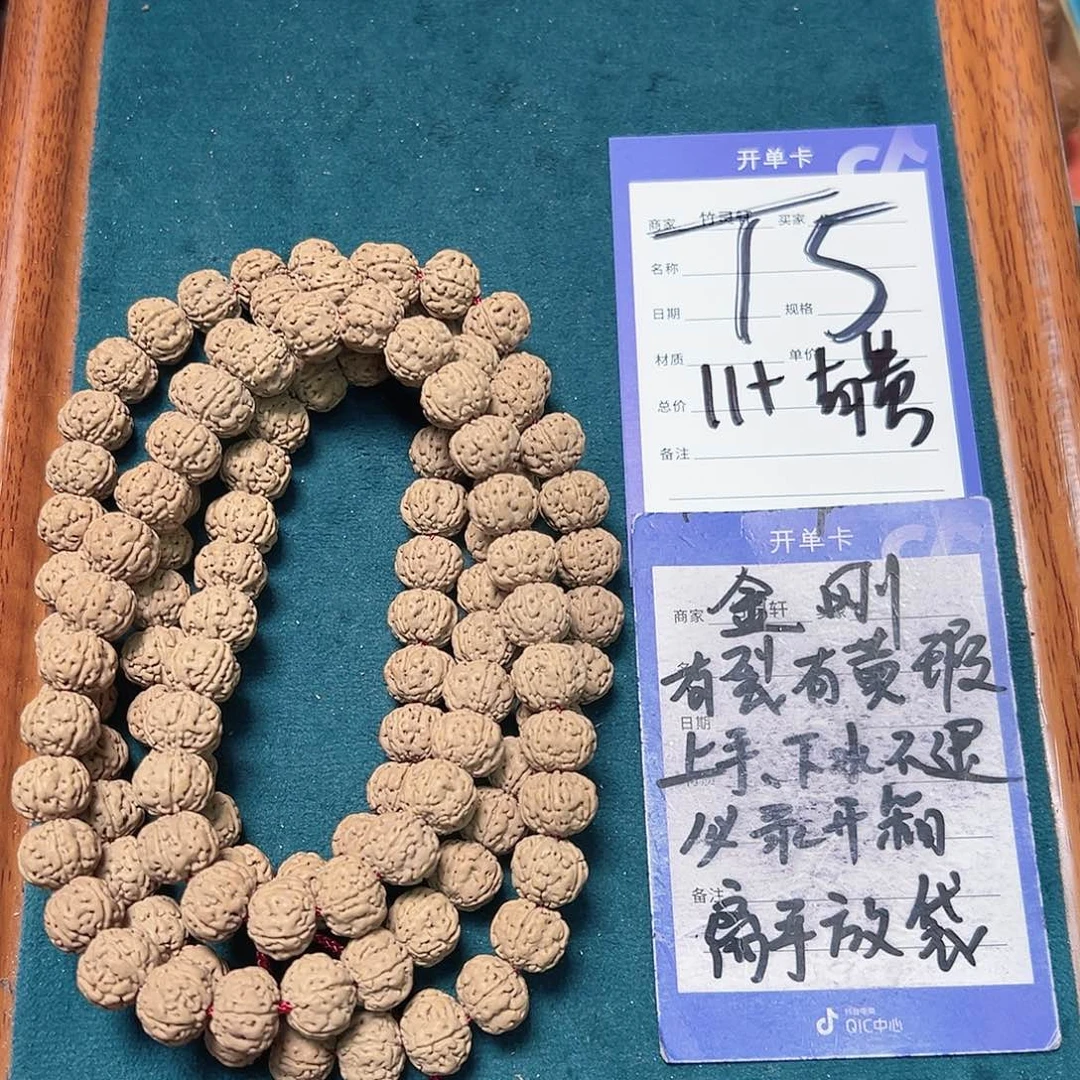 开单卡
商家 竹 买家
T5
名称
日期 规格
材质 单价
11+ 有黄
总价
备注
开单卡
金刚
商家 轩
有裂有黄瑕
日期
上手、下水不退
必录开箱
备注
离手放袋
QIC中心